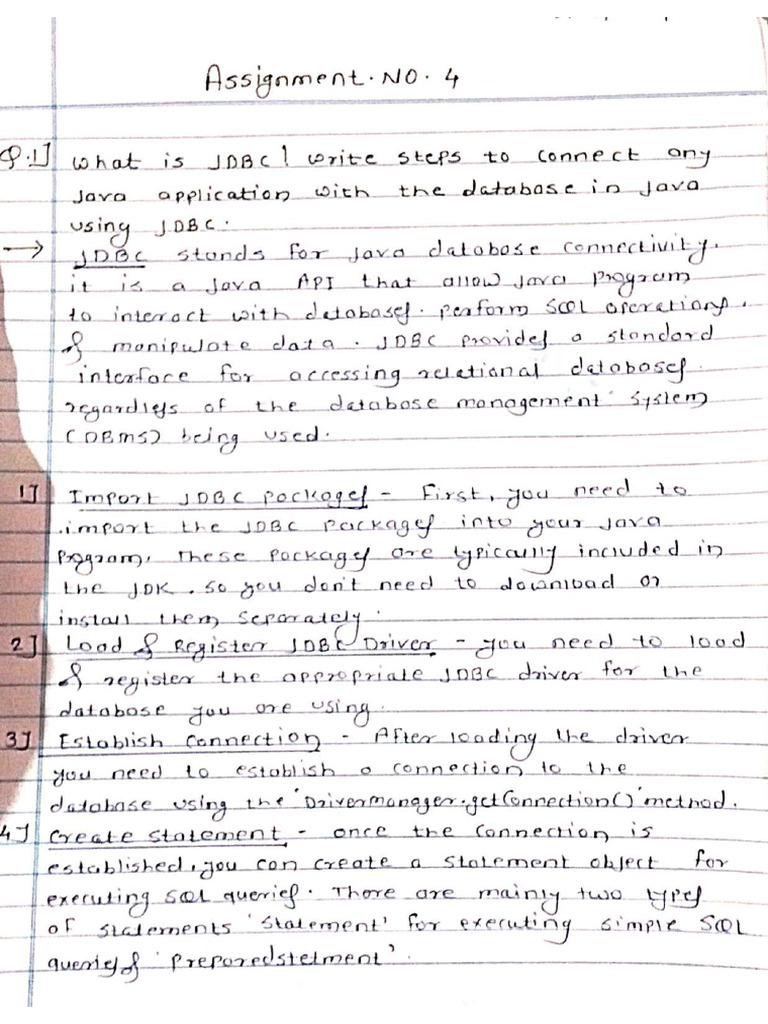 Assignment. No. 4
Q.1] What is JDBC! write steps to connect any
Java application with the database in Java
using JDBC.
→ JDBC stands for Java database connectivity.
it is a Java API that allow Java program
to interact with databases. perform SQL operations,
& manipulate data. JDBC provides a standard
interface for accessing relational databases
regardless of the database management system
(DBMS) being used.
1] Import JDBC packages - First, you need to
import the JDBC packages into your Java
program, These packages are typically included in
the JDK, so you don't need to download or
install them separately.
2] Load & Register JDBC Driver - you need to load
& register the appropriate JDBC driver for the
database you are using.
3] Establish Connection - After loading the driver
you need to establish a connection to the
database using the 'Drivermanager.getConnection()' method.
4] Create statement - once the connection is
established, you can create a statement object for
executing SQL queries. There are mainly two types
of statements 'statement' for executing simple SQL
queries & 'preparedstetment'.